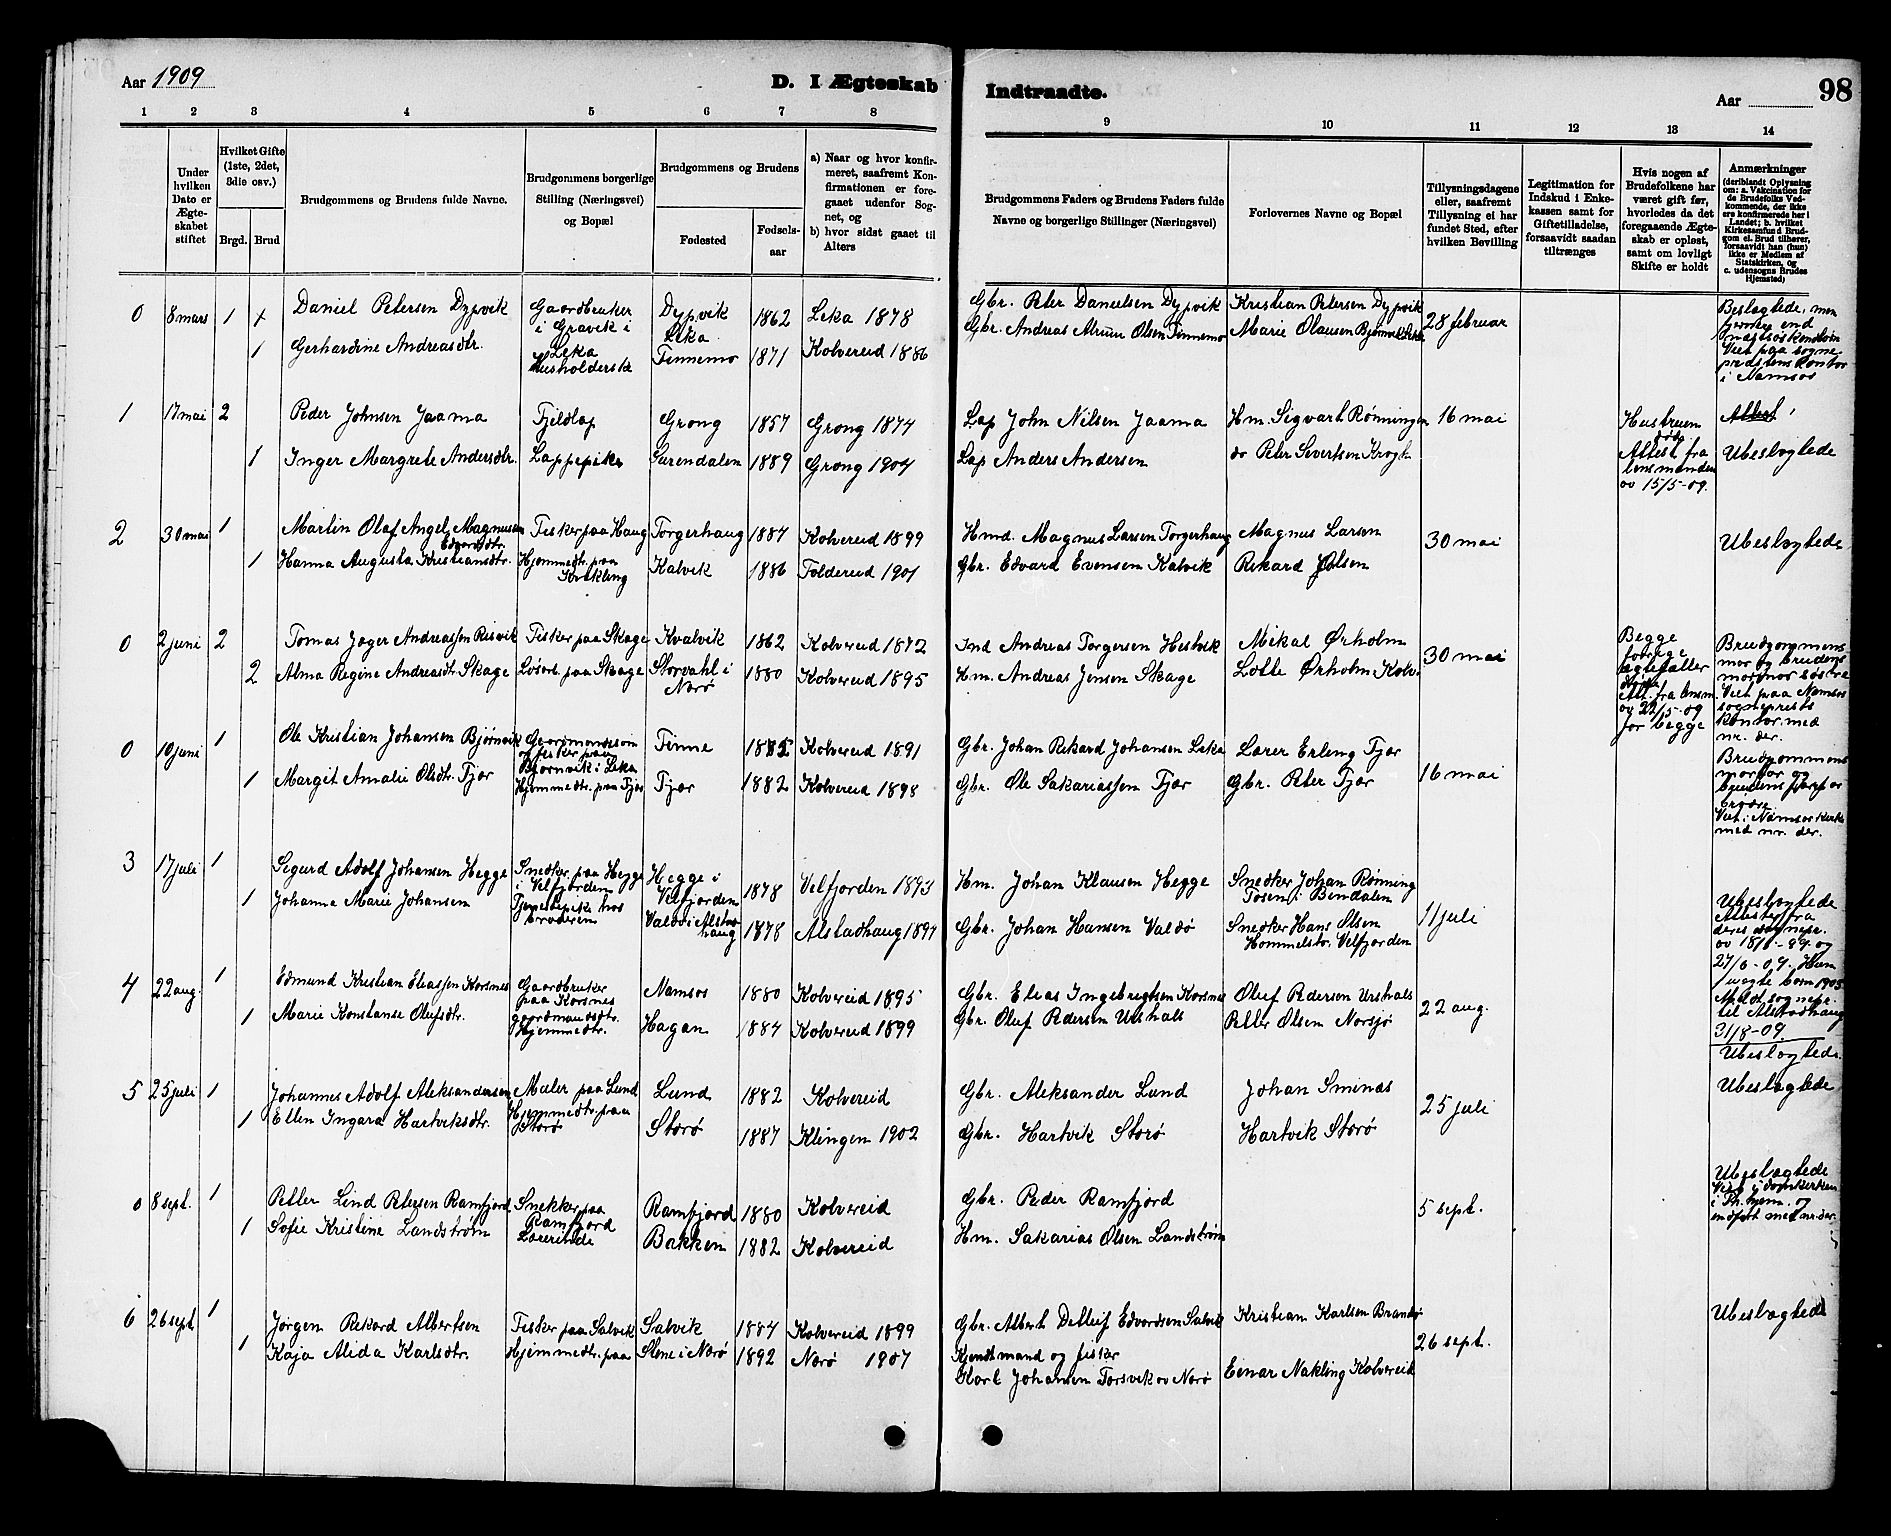 Aar 1909
D. I Ægteskab Indtraadte.
Aar
98
1 2 3 4 5 6 7 8 9 10 11 12 13 14
Under hvilken Dato er Ægteskabet stiftet
Hvilket Gifte (1ste, 2det, 3die osv.)
Brgd. Brud
Brudgommens og Brudens fulde Navne.
Brudgommens borgerlige Stilling (Næringsvei) og Bopæl
Brudgommens og Brudens
Fødested
Fødselsaar
a) Naar og hvor konfirmeret, saafremt Konfirmationen er foregaaet udenfor Sognet, og
b) hvor sidst gaaet til Alters
Brudgommens Faders og Brudens Faders fulde Navne og borgerlige Stillinger (Næringsvei)
Forlovernes Navne og Bopæl
Tillysningsdagene eller, saafremt Tillysning ei har fundet Sted, efter hvilken Bevilling
Legitimation for Indskud i Enkekassen samt for Giftetilladelse, forsaavidt saadan tiltrænges
Hvis nogen af Brudefolkene har været gift før, hvorledes da det foregaaende Ægteskab er opløst, samt om lovligt Skifte er holdt
Anmærkninger (deriblandt Oplysning om: a. Vakcination for de Brudefolks Vedkommende, der ikke ere konfirmerede her i Landet; b. hvilket Kirkesamfund Brudgom el. Brud tilhører, forsaavidt han (hun) ikke er Medlem af Statskirken, og c. udensogns Brudes Hjemsted)
0 8 mars 1 Daniel Petersen Dypvik Gaardbruker i Gravik i Leka Dypvik Leka 1862 Leka 1878 Gbr. Peter Danielsen Dypvik Kristian Petersen Dypvik 28 februar
1 Gerhardine Andreasdtr. Finnemo 1871 Kolvereid 1886 Gbr. Andreas Olsen Finnemo Marie Olausen
Beslægtede, men
Viet paa sogneprestens kontor i Namsos
1 17 mai 2 Peder Johnsen Jaama Fjeldlap Grong 1857 Grong 1874 Lap John Nilsen Jaama Hm. Sigvart Rønningen 16 mai
Hustruen død Attest fra lensmanden av 15/5-09.
1 Inger Margrete Andersdtr. Lappepike Surendalen 1889 Grong 1904 Lap Anders Andersen do Peter Sivertsen Krogh Ubeslægtede
2 30 mai 1 Martin Olaf Angel Magnussen Fisker paa Haug Torgerhaug 1887 Kolvereid 1899 Hmd. Magnus Larsen Torgerhaug Magnus Larsen 30 mai Ubeslægtede
1 Hanna Augusta Edvardsdtr. Kristiansdtr. Hjemmedtr. paa Kalvik 1886 Foldereid 1901 Gbr. Edvard Evensen Kalvik Rikard Olsen
0 2 juni 2 Tomas Jæger Andreassen Risvik Fisker paa Skage Kvalvik 1862 Kolvereid 1872 Ind Andreas Torgersen Hestvik Mikal Ørholm 30 mai
2 Alma Regine Andreasdtr. Skage Løsarb. paa Skage Storvahl i Nærø 1880 Kolvereid 1895 Hm. Andreas Jensen Skage Lotte Ørholm Kolv.
Begge forrige ægtefæller døde Att. fra lensm. av 22/5-09 for begge
Brudgommens mor og brudens mormor søstre Viet paa Namsos sogneprests kontor med nr. der.
0 10 juni 1 Ole Kristian Johansen Bjørnvik Gaardmandssøn og fisker paa Bjørnvik i Leka Finne 1885 Kolvereid 1891 Gbr. Johan Rikard Johansen Leka Lærer Erling Fjær 16 mai
1 Margit Amalie Olsdtr. Fjær Hjemmedtr. paa Fjær Fjær 1882 Kolvereid 1898 Gbr. Ole Sakariassen Fjær Gbr. Peter Fjær
Brudgommens morfar og brudens farfar brødre Viet i Namsos kirke med nr. der.
3 17 juli 1 Sigurd Adolf Johansen Hegge Snedker paa Hegge i Velfjorden Hegge i Velfjorden 1878 Velfjorden 1893 Hm. Johan Klausen Hegge Snedker Johan Rønning Tosen i Bindalen 11 juli
1 Johanna Marie Johansen Tjenestepike hos broderen Valdø i Alstahaug 1878 Alstadhaug 1894 Gbr. Johan Hansen Valdø Snedker Hans Olsen Hommelsto. Velfjorden
Ubeslægtede Attester fra deres sognepr.
Meldt sognepr. til Alstadhaug 31/8-09.
4 22 aug. 1 Edmund Kristian Eliassen Korsnes Gaardbruker paa Korsnes Namsos 1880 Kolvereid 1895 Gbr. Elias Ingebrigtsen Korsnes Oluf Pedersen Urstals 22 aug.
1 Marie Konstanse Olufsdtr. gaardmandsdtr. Hjemmedtr. Hagan 1884 Kolvereid 1899 Gbr. Oluf Pedersen Urstals Petter Olsen Norsjø Ubeslægtede
5 25 juli 1 Johannes Adolf Aleksandersen Maler paa Lund Lund 1882 Kolvereid Gbr. Aleksander Lund Johan Sminas 25 juli Ubeslægtede
1 Ellen Ingara Hartviksdtr. Hjemmedtr. paa Storø Storø 1887 Klingen 1902 Gbr. Hartvik Storø Hartvik Storø
0 8 sept. 1 Petter Lind Petersen Ramfjord Snekker paa Ramfjord Ramfjord 1880 Kolvereid Gbr. Peder Ramfjord 5 sept.
1 Sofie Kristine Landstrøm Lærerinde Bakken 1882 Kolvereid Hm. Sakarias Olsen Landstrøm
Ubeslægtede Viet i domkirken i Th.hjem og indført med nr. der.
6 26 sept 1 Jørgen Rikard Albertsen Fisker paa Salvik Salvik 1884 Kolvereid 1899 Gbr. Albert Detleif Edvardsen Salvik Kristian Karlsen Brandø 26 sept. Ubeslægtede
1 Kaja Alida Karlsdtr. Hjemmedtr. paa Stene i Nærø 1892 Nærø 1907 og fisker Karl Johansen Torsvik av Nærø Einar Nakling Kolvereid